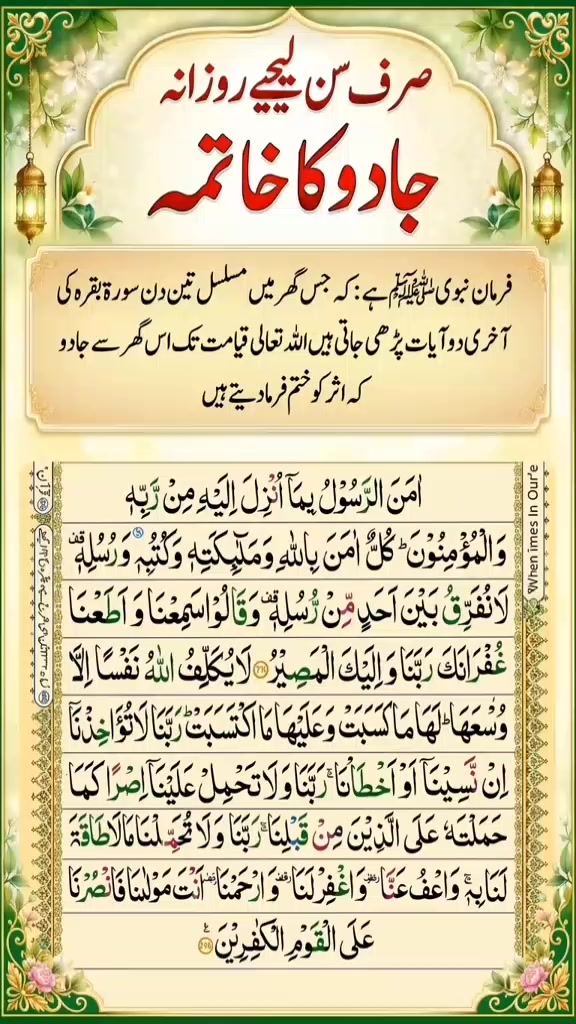 صرف سن لیجیے روزانہ
جادو کا خاتمہ
فرمان نبوی ﷺ ہے: کہ جس گھر میں مسلسل تین دن سورۃ بقرہ کی
آخری دو آیات پڑھی جاتی ہیں اللہ تعالی قیامت تک اس گھر سے جادو
کہ اثر کو ختم فرما دیتے ہیں
اٰمَنَ الرَّسُوْلُ بِمَاۤ اُنْزِلَ اِلَیْهِ مِنْ رَّبِّهٖ
وَالْمُؤْمِنُوْنَ ؕ کُلٌّ اٰمَنَ بِاللّٰهِ وَمَلٰٓئِکَتِهٖ وَکُتُبِهٖ وَرُسُلِهٖ ۟
لَا نُفَرِّقُ بَیْنَ اَحَدٍ مِّنْ رُّسُلِهٖ ۟ وَقَالُوْا سَمِعْنَا وَ اَطَعْنَا
غُفْرَانَکَ رَبَّنَا وَ اِلَیْكَ الْمَصِیْرُ لَا یُکَلِّفُ اللّٰهُ نَفْسًا اِلَّا
وُسْعَهَا ؕ لَهَا مَا کَسَبَتْ وَعَلَیْهَا مَا اکْتَسَبَتْ ؕ رَبَّنَا لَا تُؤَاخِذْنَاۤ
اِنْ نَّسِیْنَاۤ اَوْ اَخْطَاْنَا ۚ رَبَّنَا وَلَا تَحْمِلْ عَلَیْنَاۤ اِصْرًا کَمَا
حَمَلْتَهٗ عَلَی الَّذِیْنَ مِنْ قَبْلِنَا ۚ رَبَّنَا وَلَا تُحَمِّلْنَا مَا لَا طَاقَةَ
لَنَا بِهٖ ۚ وَاعْفُ عَنَّا ۥ وَاغْفِرْ لَنَا ۥ وَارْحَمْنَا ۥ اَنْتَ مَوْلٰىنَا فَانْصُرْنَا
عَلَی الْقَوْمِ الْکٰفِرِیْنَ
When imes In Our'e